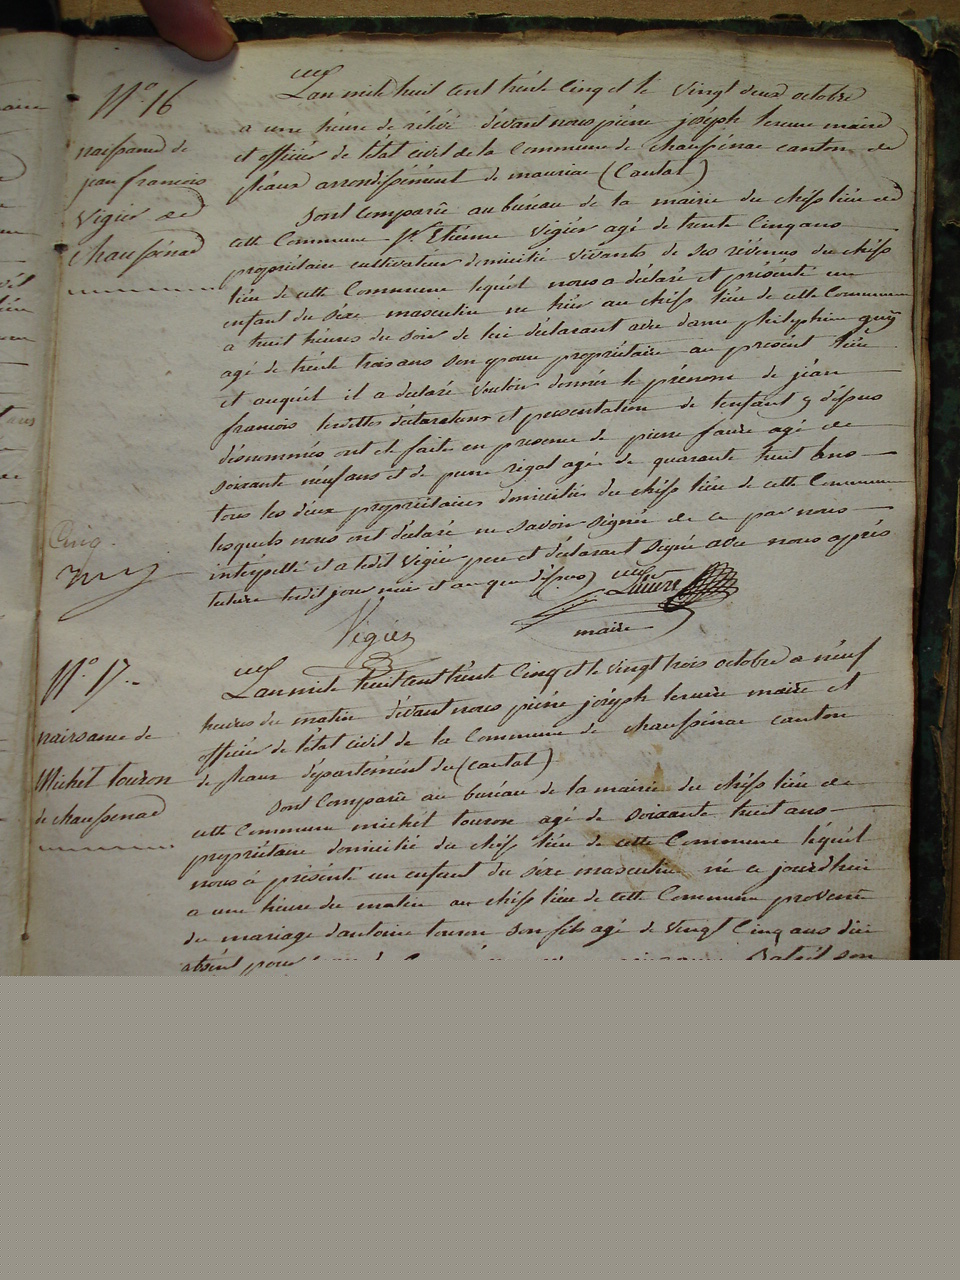 N° 16
naissance de
jean francois
Vigier de
chaussenac
Lan mile huit cent trente Cinq et le vingt deux octobre
a une heure de rélévé dévant nous pierre joséph leruve maire
et officier de létat civil de la Commune de chaussénac canton de
pléaux arrondissément de mauriac (Cantal)
Sont Comparûe au buréau de la mairie du chéfs liéu de
cette Commune Etiénne Vigiér agé de trente Cinq ans
propriétaire cultivateur domicilié vivants de ses révénus du chéfs
liéu de cette Commune léquél nous a déclaré et présenté un
enfant du séxe masculin né hiér au chéfs liéu de cette Commune
a huit héures du soir de lui déclarant avec dame philiphine
agé de trente trois ans son épouse propriétaire au présent liéu
et auquél il a déclaré vouloir donnér le prénom de jéan
francois lesdittes déclarations et présentation de lenfant y déssus
dénommés ont été faite en présence de pierre faure agé de
soixante néuf ans et de pierre rigal agé de quarante huit ans
tous les déux propriétaires domiciliés du chéfs liéu de cette Commune
lesquels nous ont déclaré ne savoir signér de ce par nous
intérpéllé et a ledit Vigiér pere et déclarant signé avec nous aprés
lecture ledit jour mois et an que déssus
Vigier
maire
Cinq
N° 17
naissance de
Michél touron
de chaussenac
Lan mile huit cent trente Cinq et le vingt trois octobre a néuf
heures du matin dévant nous piérre joséph leruve maire et
officiér de létat civil de la Commune de chaussénac canton
de pléaux départemént du (cantal)
Sont Comparûe au buréau de la mairie du chéfs liéu de
cette Commune michél touron agé de soixante huit ans
propriétaire domicilié du chéfs liéu de cette Commune léquél
nous á présenté un enfant du séxe masculin né ce jourdhui
a une héure du matin au chéfs liéu de cette Commune provenu
du mariage dantoine touron son fils agé de vingt Cinq ans dici
absént pour